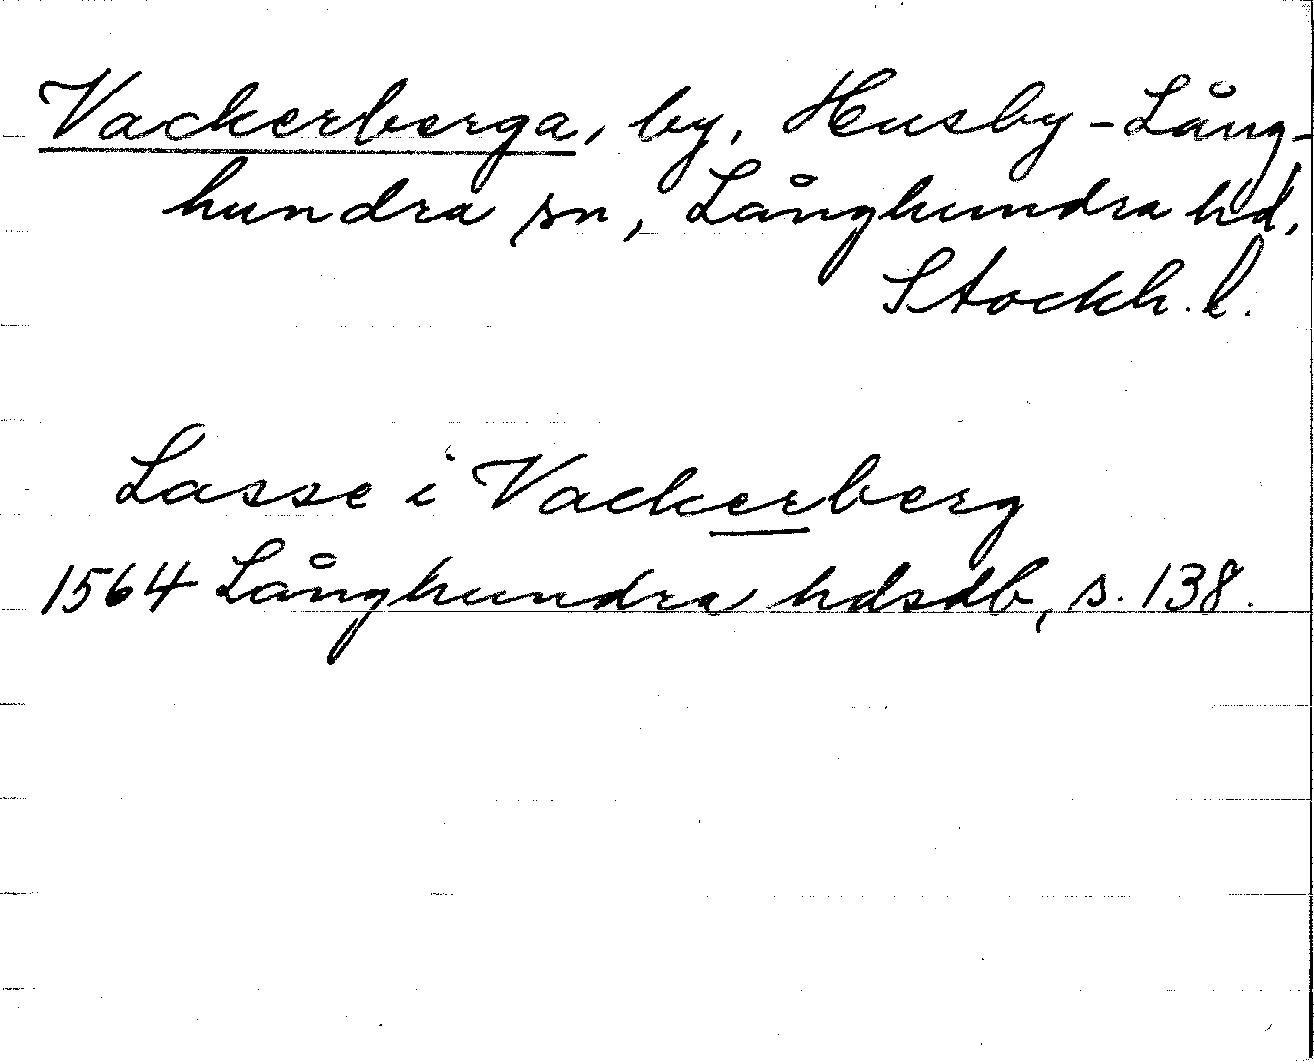 Vackerberga, by, Husby-Lång-
hundra sn, Långhundra hd,
Stockh. l.
Lasse i Vackerberg
1564 Långhundra hdsdb, s. 138.